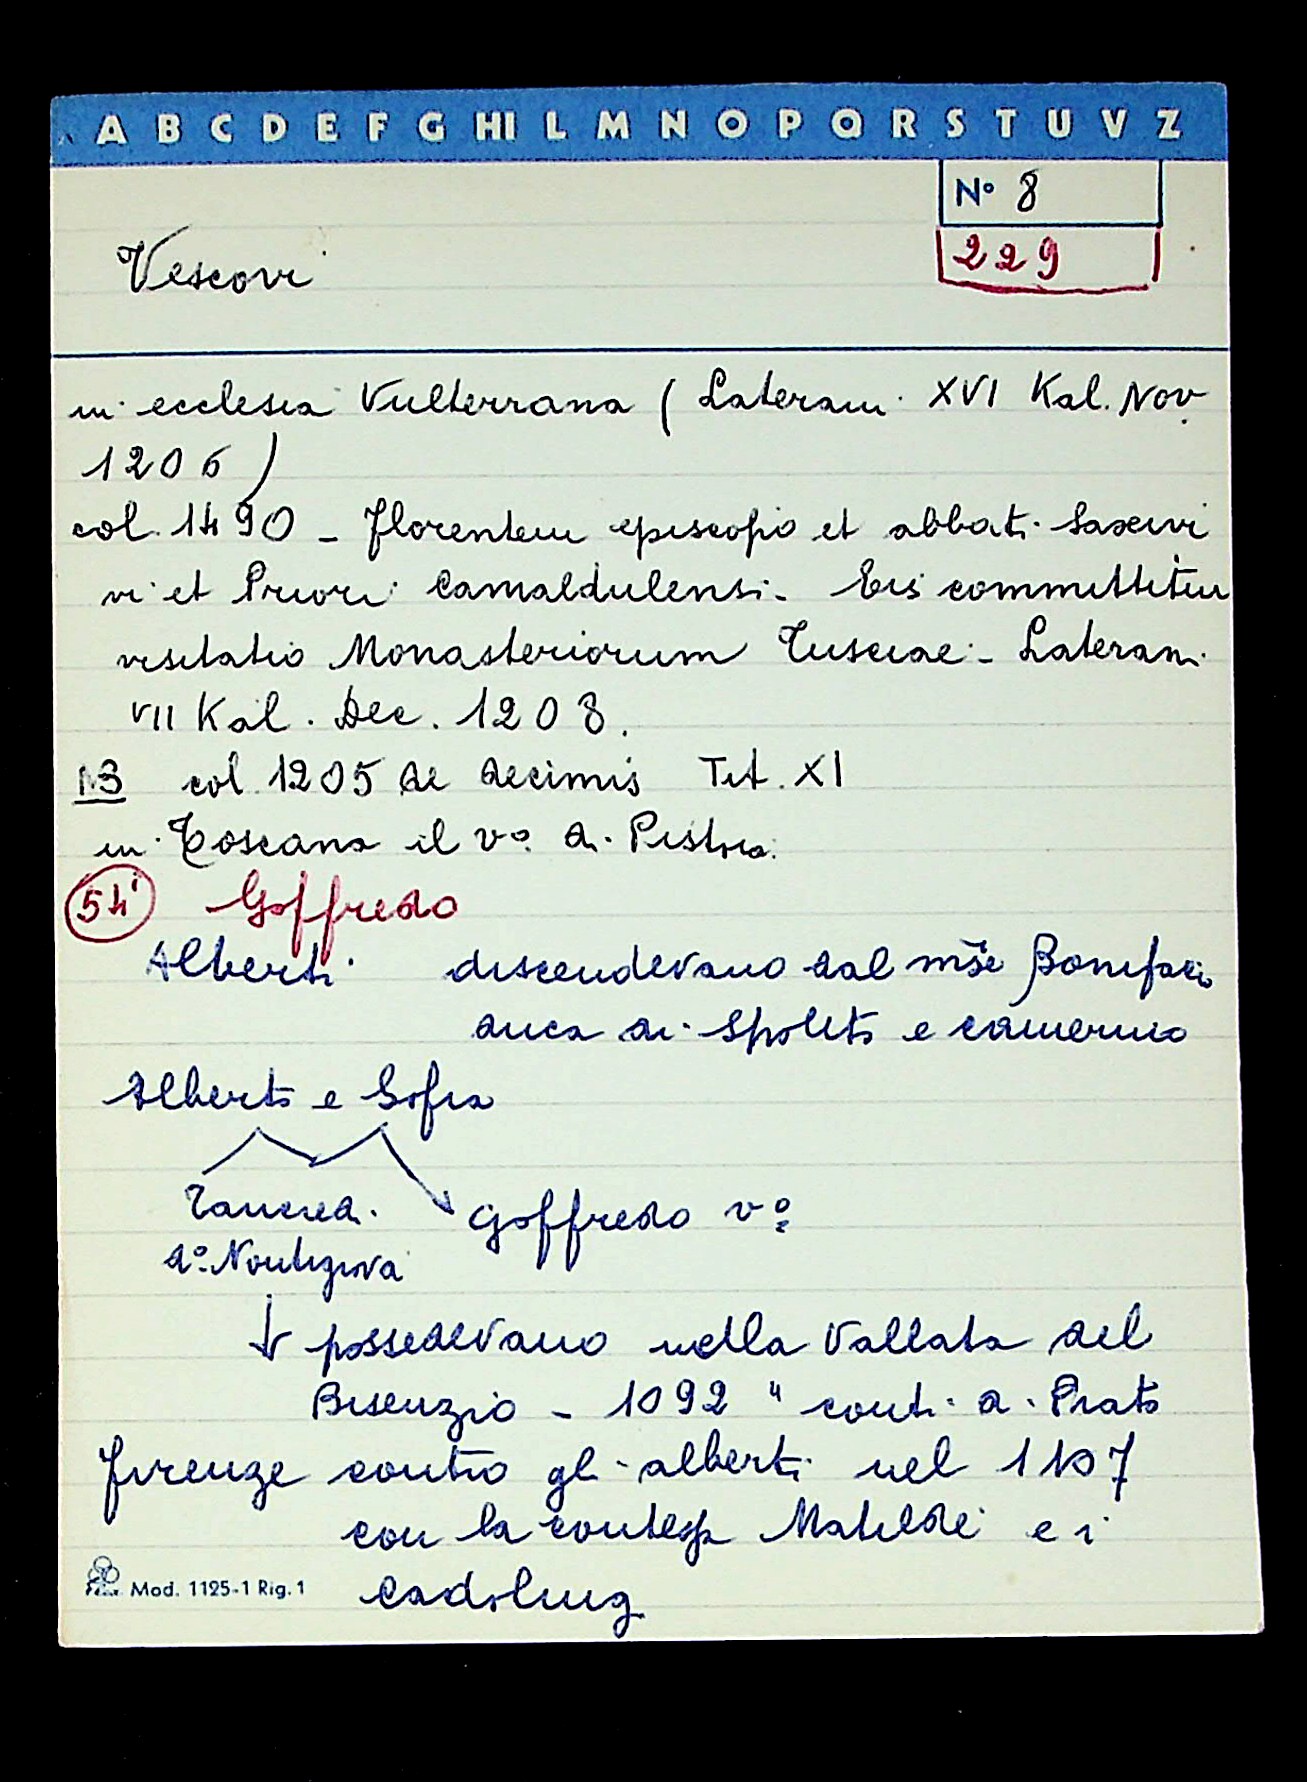 A B C D E F G HI L M N O P Q R S T U V Z
N° 8
229
Vescovi
in ecclesia Vulterrana ( Lateran. XVI Kal. Nov.
1206 )
col. 1490 - florentein episcopo et abbati Saxivi
vi et Priori Camaldulensi - Eis committitur
visitatio Monasteriorum Tusciae - Lateran.
VII Kal. Dec. 1208.
NB col. 1205 de decimis Tit. XI
in Toscana il v° di Pistoia
54' Goffredo
Alberti discendevano dal mse Bonifaci
duca di Spoleto e camerino
Alberto e Sofia
Tancred. Goffredo v°
d° Nontigiova
possedevano nella Vallata del
Bisenzio - 1092 " conti di Prato
firenze contro gli alberti nel 1107
con la contessa Matilde e i
cadoling
Mod. 1125-1 Rig. 1